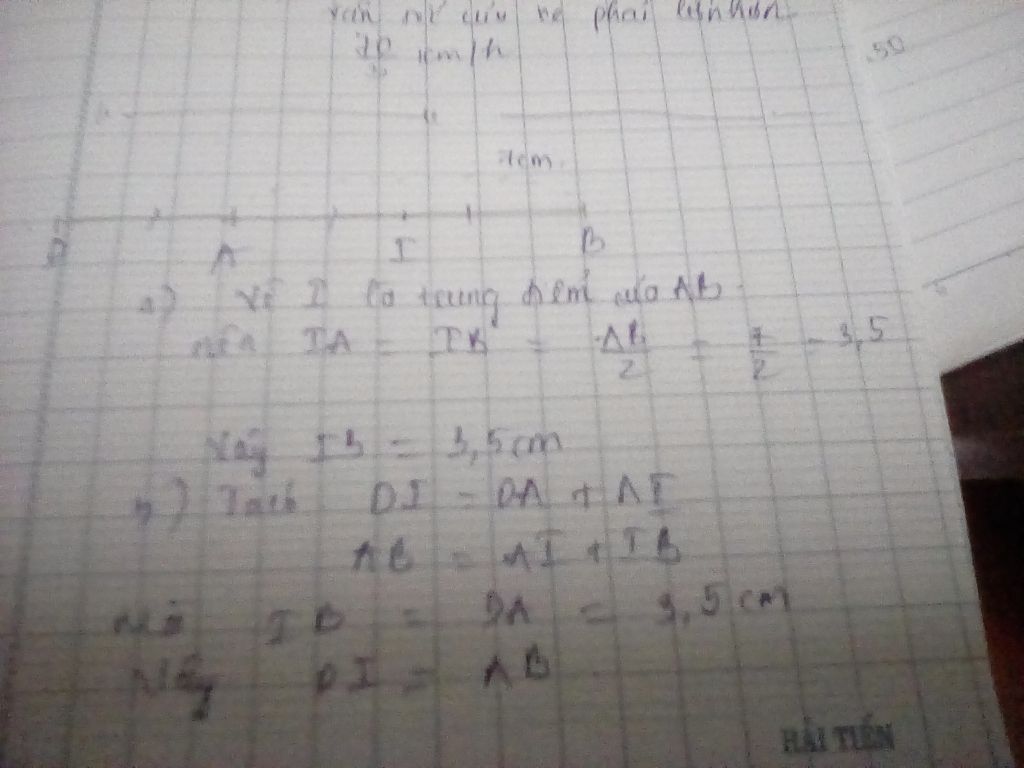 phải lớn hơn
70 km/h
50
7cm
D A I B
a) Vì I là trung điểm của AB
nên IA = IB = AB/2 = 7/2 = 3,5
Vậy IB = 3,5 cm
b) Ta có DI = DA + AI
AB = AI + IB
mà IB = DA = 3,5 cm
Vậy DI = AB
HẢI TIẾN